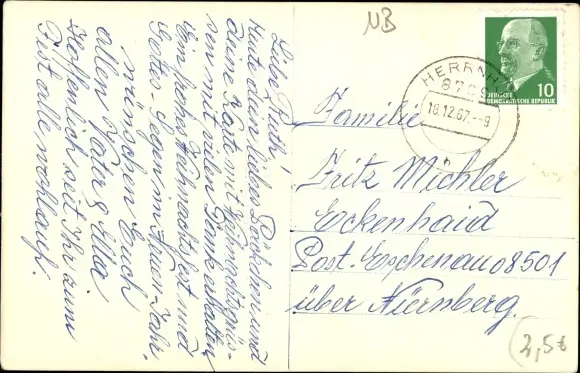 Liebe Ruth!
Heut dein liebes Päckchen und
deine Karte mit Weihnachtsgrüs-
sen mit vielen Dank erhalten
Ein frohes Weihnachtsfest und
Gottes Segen im Neuen Jahr
wünschen Euch
allen Vater & Ella
Hoffentlich seit Ihr zum
Fest alle wohlauf.
NB
DEUTSCHE
DEMOKRATISCHE REPUBLIK
10
HERRNHUT
8709
16.12.67.--9
Familie
Fritz Michler
Eckenhaid
Post. Eschenau 08501
über Nürnberg.
2,5€